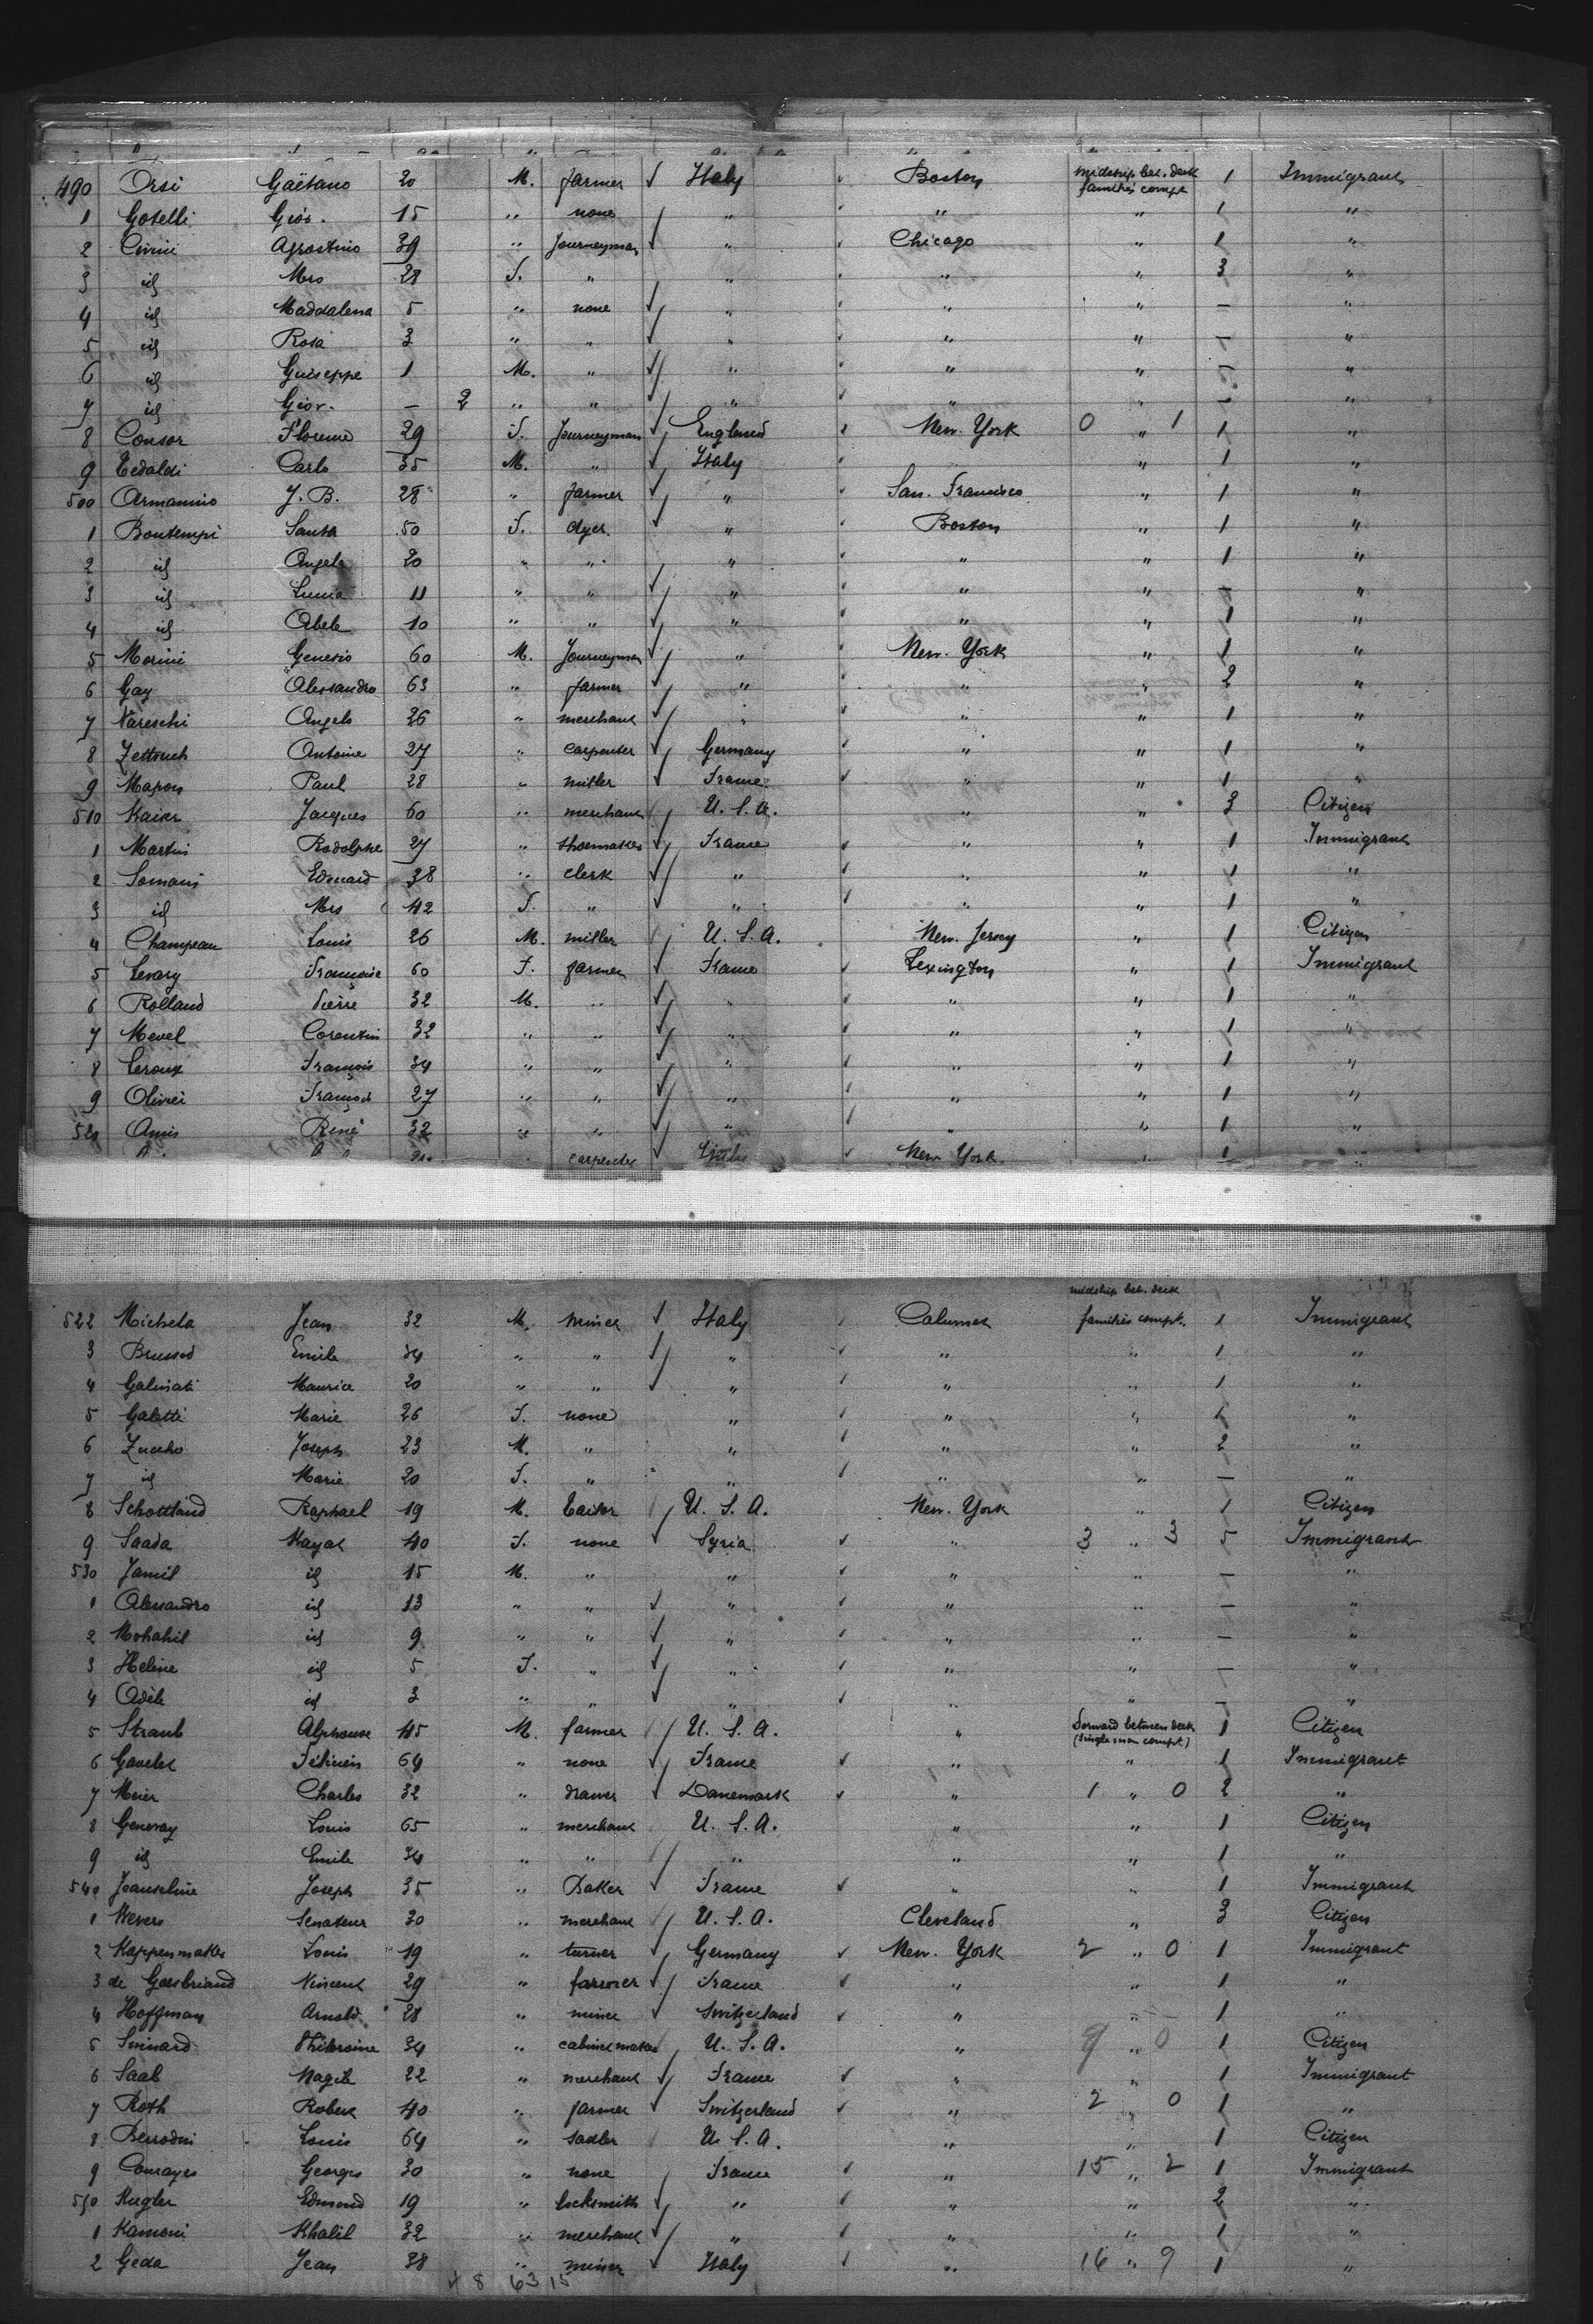 490 Orsi Gaëtano 20 M. farmer ✓ Italy Boston midship bet. deck families compt 1 Immigrant
1 Gotelli Giov. 15 " none ✓ " " " 1 "
2 Agostino 39 " Journeyman ✓ " Chicago " 1 "
3 id Mrs 28 F. " " " " 3 "
4 id Maddalena 5 " none ✓ " " " — "
5 id Rosa 3 " " ✓ " " " — "
6 id Guiseppe 1 M. " ✓ " " " — "
7 id Giov. — 2 " " ✓ " " " — "
8 Consor Florence 29 F. Journeyman ✓ England New. York 0 " 1 1 "
9 Tedaldi Carlo 35 M. " ✓ Italy " 1 "
500 Armanino J. B. 28 " farmer ✓ " San. Francisco " 1 "
1 Bontempi Santa 50 F. dyer. ✓ " Boston " 1 "
2 id Angela 20 " " " " " 1 "
3 id 11 " " ✓ " " " — "
4 id Abele 10 " " ✓ " " " 1 "
5 Morini Genesio 60 M. Journeyman ✓ " New. York " 1 "
6 Gay Alessandro 63 " farmer ✓ " " " 2 "
7 Vareschi Angelo 26 " merchant ✓ " " " 1 "
8 Antoine 27 " carpenter ✓ Germany " " 1 "
9 Paul 28 " miller ✓ France " " 1 "
510 Jacques 60 " merchant U. S. A. " " 3 Citizen
1 Martin Rodolphe 27 " shoemaker ✓ France " " 1 Immigrant
2 Edouard 38 " clerk ✓ " " " 1 "
3 id Mrs 42 F. " ✓ " " " 1 "
4 Champeau Louis 26 M. miller U. S. A. New. Jersey " 1 Citizen
5 Françoise 60 F. farmer ✓ France Lexington " 1 Immigrant
6 Rolland Pierre 32 M. " ✓ " " " 1 "
7 Mevel Corentin 32 " " ✓ " " " 1 "
8 Leroux François 34 " " ✓ " " " 1 "
9 François 27 " " ✓ " " " 1 "
520 René 32 " " ✓ " " " 1 "
carpenter ✓ Italy New York. 1
midship bet. deck
522 Michela Jean 32 M. miner ✓ Italy Calumet families compt. 1 Immigrant
3 Emile 34 " " ✓ " " " 1 "
4 Maurice 20 " " ✓ " " " 1 "
5 Galetti Marie 26 F. none " " " 1 "
6 Joseph 23 M. " " " " 2 "
7 id Marie 20 F. " " " " — "
8 Schottland Raphael 19 M. U. S. A. New. York " 1 Citizen
9 Saada Kayat 40 F. none ✓ Syria " 3 " 3 5 Immigrant
530 Jamil id 15 M. " " " " — "
1 Alessandro id 13 " " ✓ " " " — "
2 id 9 " " ✓ " " " — "
3 Hélène id 5 F. " ✓ " " " — "
4 Adèle id 3 " " ✓ " " " — "
5 Straub Alphonse 45 M. farmer U. S. A. " Forward between deck (single men compt.) 1 Citizen
6 64 " none ✓ France " " 1 Immigrant
7 Meier Charles 32 " ✓ Danemark " 1 " 0 2 "
8 Louis 65 " merchant U. S. A. " " 1 Citizen
9 id Emile 34 " " " " " 1 "
540 Joseph 35 " Baker ✓ France " " 1 Immigrant
1 Senateur 30 " merchant U. S. A. Cleveland " 3 Citizen
2 Kappenmaker Louis 19 " turner ✓ Germany New. York 2 " 0 1 Immigrant
3 de Vincent 29 " ✓ France " " 1 "
4 Hoffman Arnold 28 " miner ✓ Switzerland " " 1 "
5 34 " cabinetmaker U. S. A. " 9 " 0 1 Citizen
6 Saab Nagib 22 " merchant ✓ France " " 1 Immigrant
7 Roth Robert 40 " farmer ✓ Switzerland " 2 " 0 1 "
8 Louis 64 " sadler U. S. A. " " 1 Citizen
9 Georges 30 " none France " 15 " 2 1 Immigrant
550 Kugler Edmond 19 " locksmith ✓ " " " 2 "
1 Khalil 32 " merchant ✓ " " " 1 "
2 Geda Jean 38 " miner ✓ Italy " 16 " 9 1 "
8 63 15